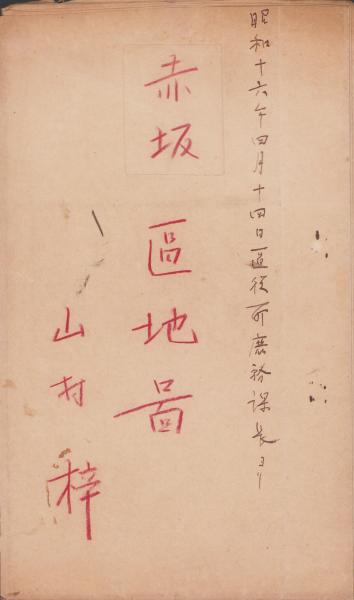 昭和十六年四月十四日區役所庶務課長ヨリ
赤坂區地啚
山村梓